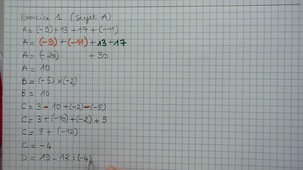 Exercice 1 (sujet A)
A = (-9) + 13 + 17 + (-11)
A = (-9) + (-11) + 13 + 17
A = (-20) + 30
A = 10
B = (-5) × (-2)
B = 10
C = 3 - 10 + (-2) - (-5)
C = 3 + (-10) + (-2) + 5
C = 8 + (-12)
C = -4
D = 19 - 12 : (-4)